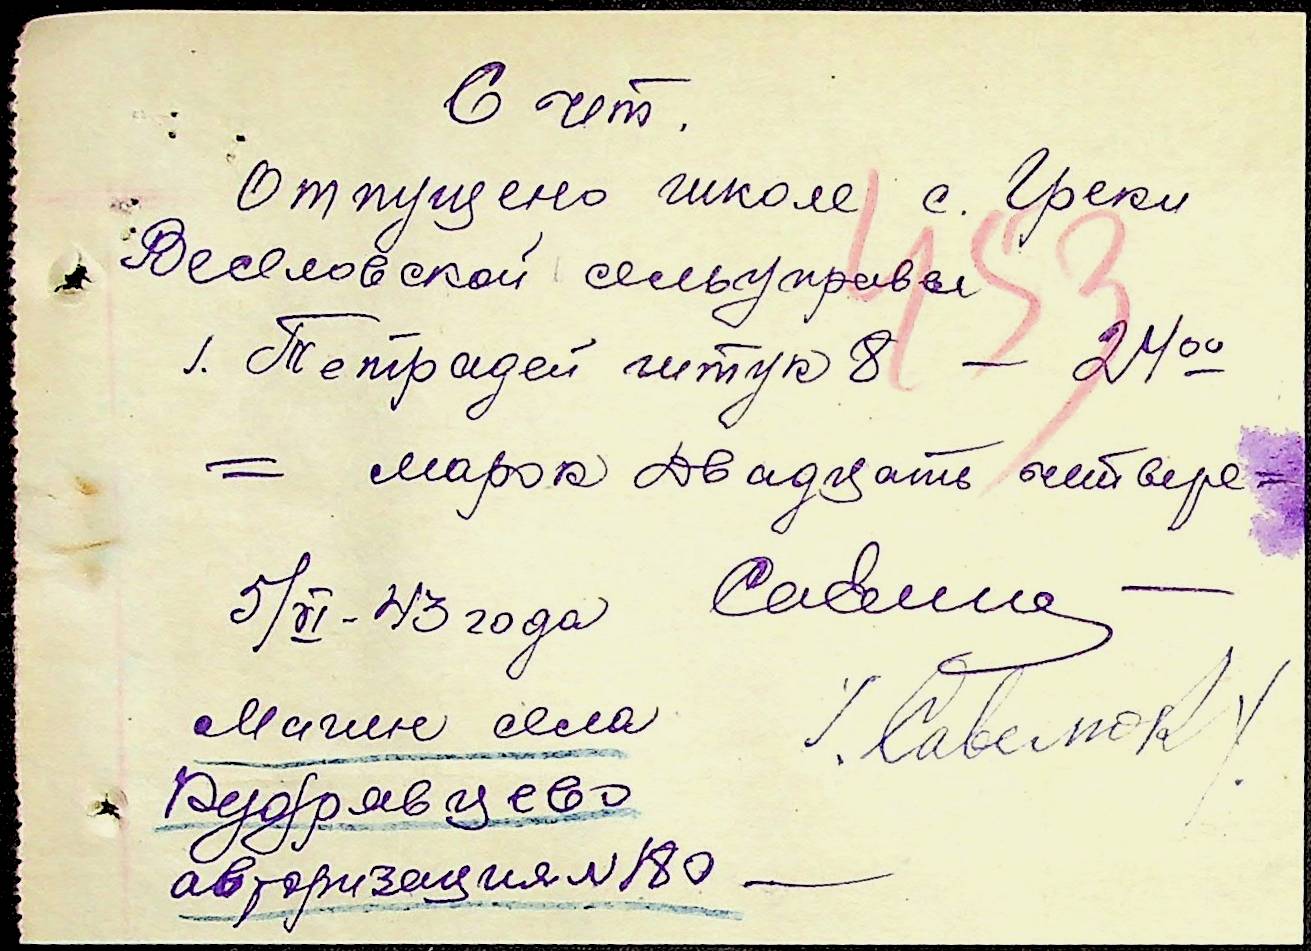 Счет.
Отпущено школе с. Греки
Веселовской сельуправы
1. Тетрадей штук 8 — 24 00
= марок двадцать читвере =
5/XI - 43 года
Магин села
Кудрявцево
авторизация N 180 —
453